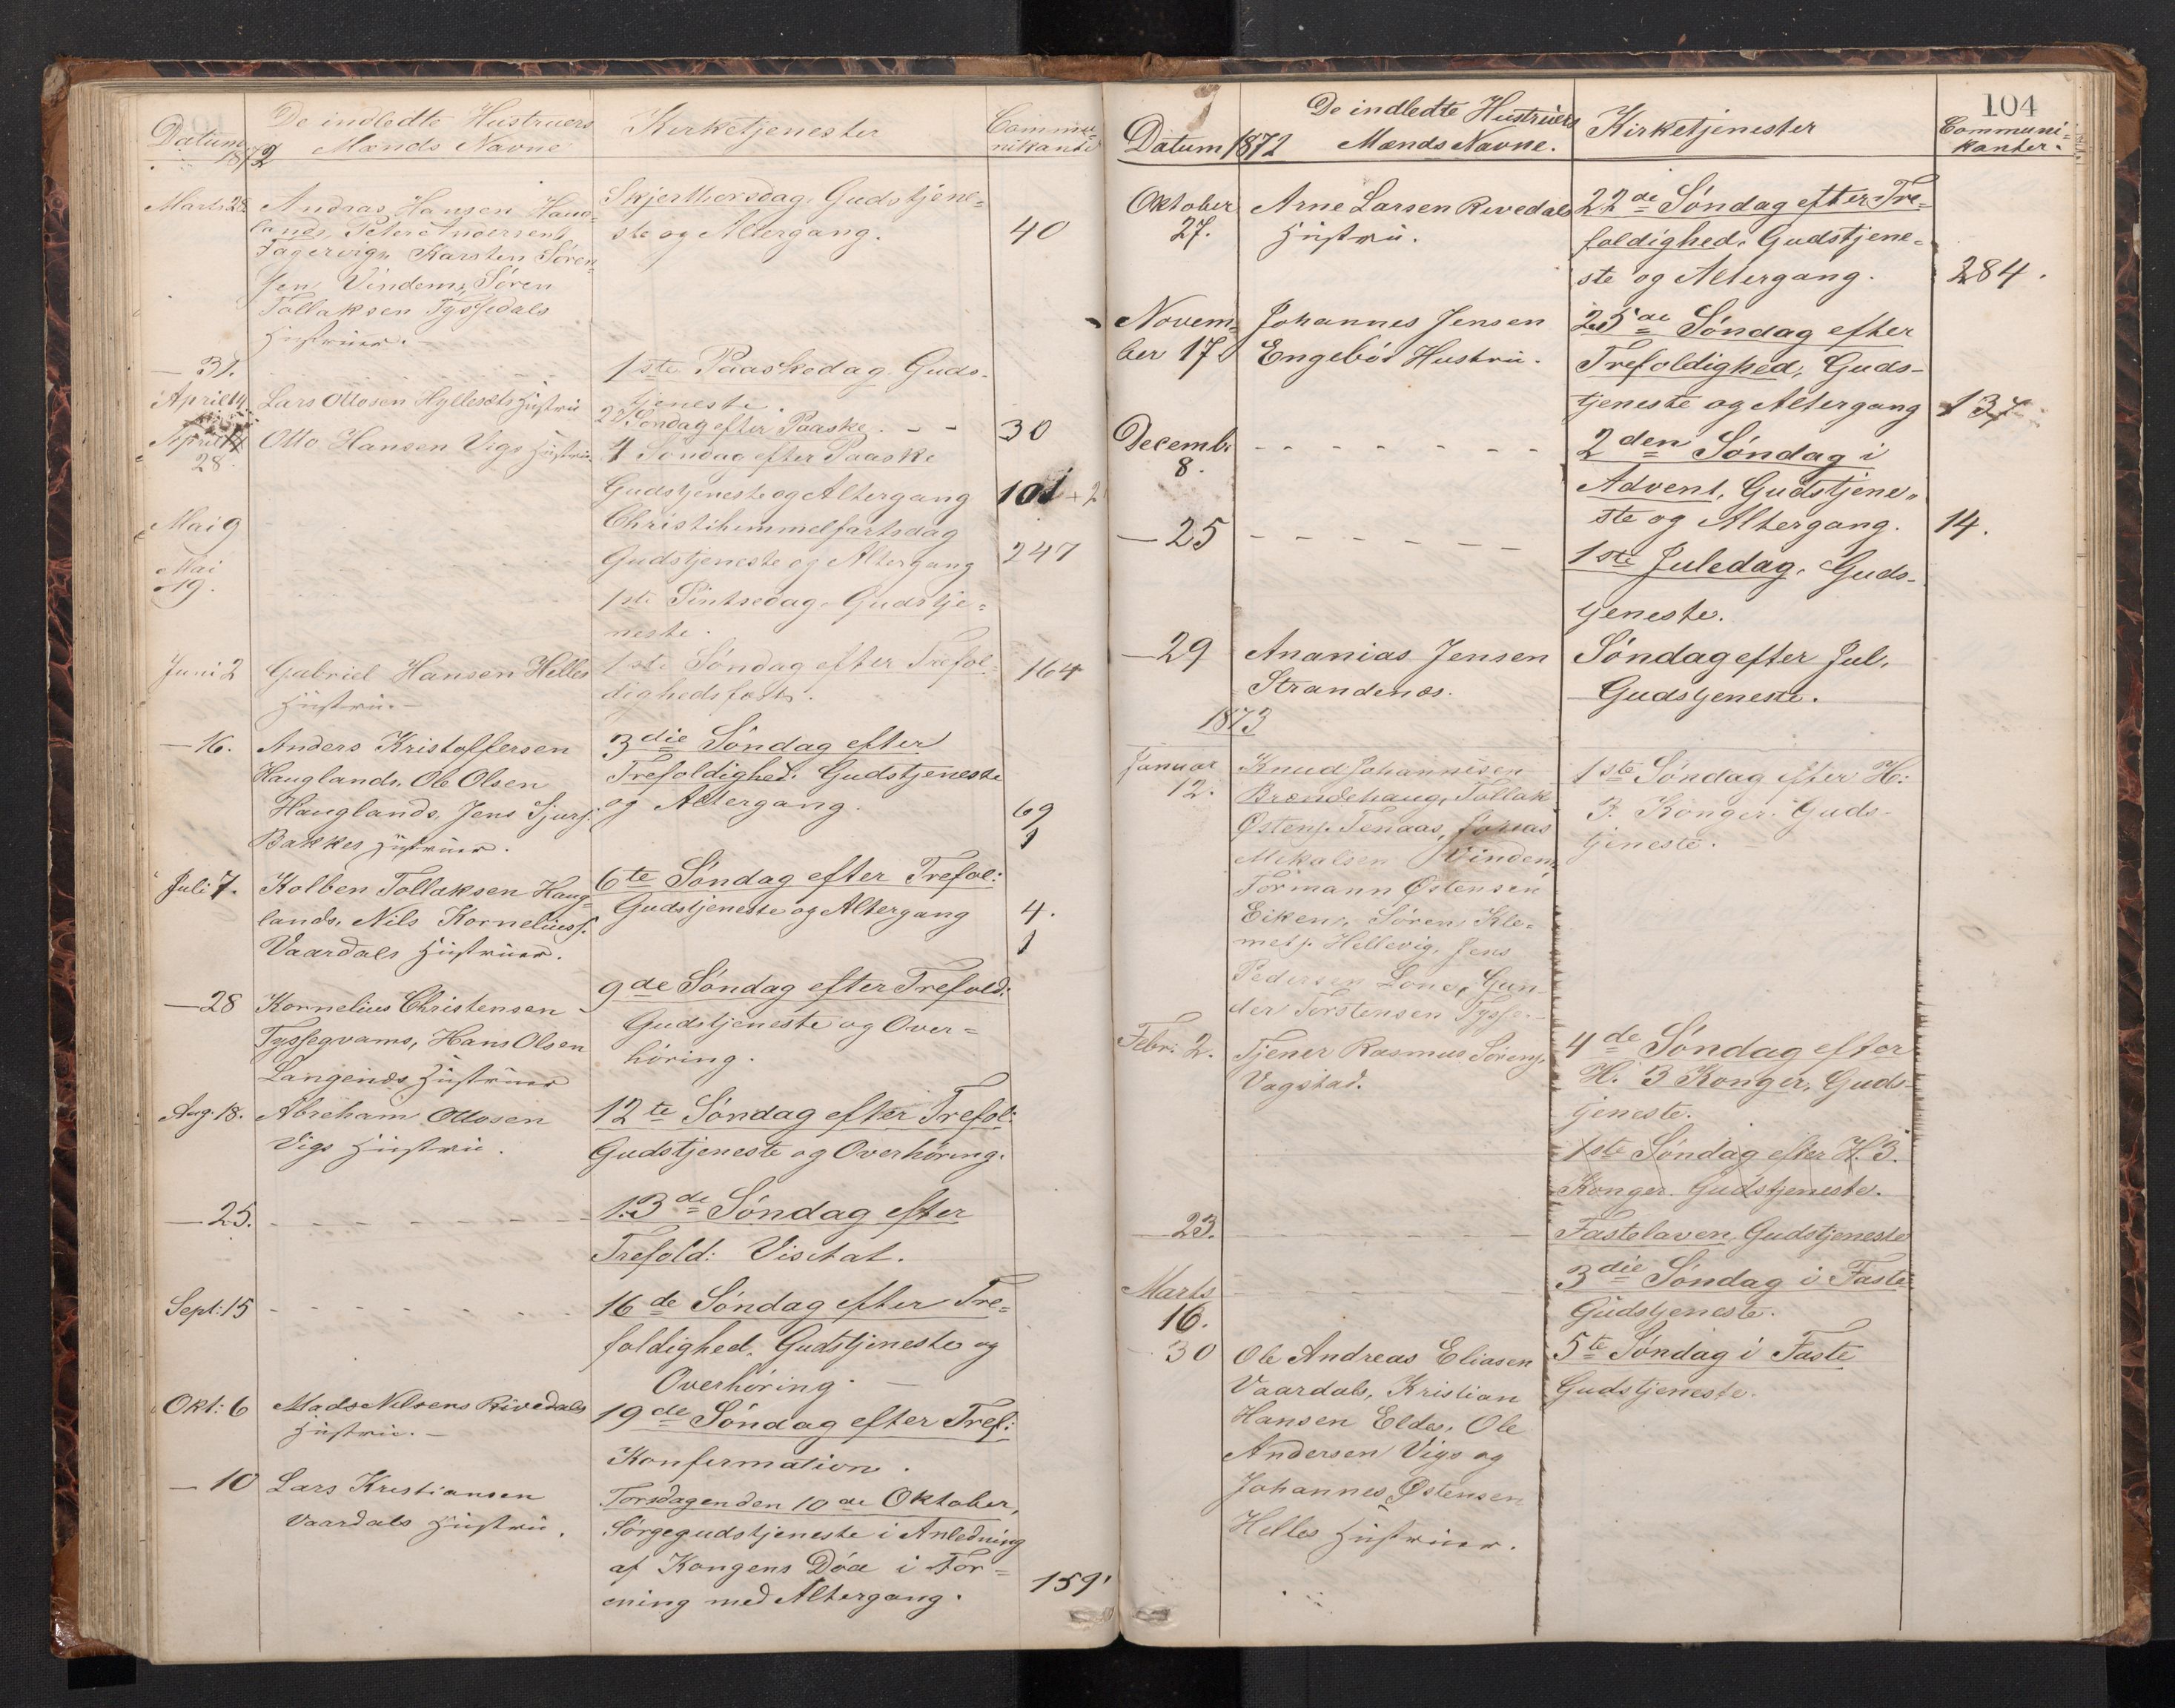 Datum 1872
De indledte Hustruers
Mænds Navne
Kirketjenester
Commu-
nikante
Marts 28
Andras Hansen Haug-
lands, Peter Andersens
Fagervigs, Karsten Søren-
sen Vindem, Søren
Tollaksen Tyssedals
Hustruer.
Skjerthorsdag. Gudstjene-
ste og Altergang.
40
— 31.
1ste Paaskedag. Guds-
tjeneste
April 14
Lars Ottosen Hyllesets Hustru
2 Søndag efter Paaske. - -
30
April
28.
Otto Hansen Vigs Hustru.
4 Søndag efter Paaske
Gudstjeneste og Altergang
101 + 2
Mai 9
Christihimmelfartsdag
Gudstjeneste og Altergang
247
Mai
19.
1ste Pintsedag. Gudstje-
neste.
Juni 2
Gabriel Hansen Helles
Hustru. —
1ste Søndag efter Trefol-
dighedsfest.
164
— 16.
Anders Kristoffersen
Hauglands, Ole Olsen
Hauglands, Jens Sjurs.
Bakkes Hustruer.
3die Søndag efter
Trefoldighed. Gudstjeneste
og Altergang.
69
1
Juli 7.
Kolben Tollaksen Haug-
lands, Nils Korneliuss.
Vaardals Hustruer.
6te Søndag efter Trefol:
Gudstjeneste og Altergang
4.
1
— 28
Kornelius Christensen
Tyssegvams, Hans Olsen
Langenæs Hustruer
9de Søndag efter Trefold:
Gudstjeneste og Over-
høring.
Aug. 18.
Abreham Ottosen
Vigs Hustru.
12te Søndag efter Trefol:
Gudstjeneste og Overhøring.
— 25. - - - - - - - -
13de Søndag efter
Trefold: Visitat.
Sept: 15 - - - - - - - -
16de Søndag efter Tre-
foldighed. Gudstjeneste og
Overhøring. —
Okt: 6
Mads Nilsens Rivedals
Hustru. —
19de Søndag efter Tref:
Konfirmation.
— 10
Lars Kristiansen
Vaardals Hustru.
Torsdagen den 10de Oktober,
Sørgegudstjeneste i Anledning
af Kongens Død i For-
ening med Altergang.
159
104
Datum 1872
De indledte Hustruers
Mænds Navne.
Kirketjenester
Communi-
kanter.
Oktober
27.
Arne Larsen Rivedals
Hustru.
22de Søndag efter Tre-
foldighed. Gudstjene-
ste og Altergang.
284.
Novem-
ber 17
Johannes Jensen
Engebø's Hustru.
25de Søndag efter
Trefoldighed, Guds-
tjeneste og Altergang
137
Decemb.
8.
- - - - - - -
2den Søndag i
Advent, Gudstjene-
ste og Altergang.
14.
— 25 - - - - - - -
1ste Juledag. Guds-
tjeneste.
— 29
Ananias Jensen
Strandenæs.
Søndag efter Jul.
Gudstjeneste.
1873
Januar
12.
Knud Johannesen
Brændehaug, Tollak
Østens. Tenaas,
Mikalsen Vindem,
Tormann Østensen
Eiken, Søren Kle-
mets. Hellevig, Jens
Pedersen Lone, Gun-
der Torstensen
1ste Søndag efter H:
3. Konger. Guds-
tjeneste.
Febr. 2.
Tjener Rasmus Sørens.
Vagstad.
4de Søndag efter
H. 3 Konger, Guds-
tjeneste.
1ste Søndag efter H. 3.
Konger. Gudstjeneste.
— 23. - - - - - - -
Fastelaven, Gudstjeneste
Marts
16.
3die Søndag i Faste
Gudstjeneste.
30
Ole Andreas Eliasen
Vaardals, Kristian
Hansen Eldes, Ole
Andersen Vigs og
Johannes Østensen
Helles Hustruer.
5te Søndag i Faste
Gudstjeneste.